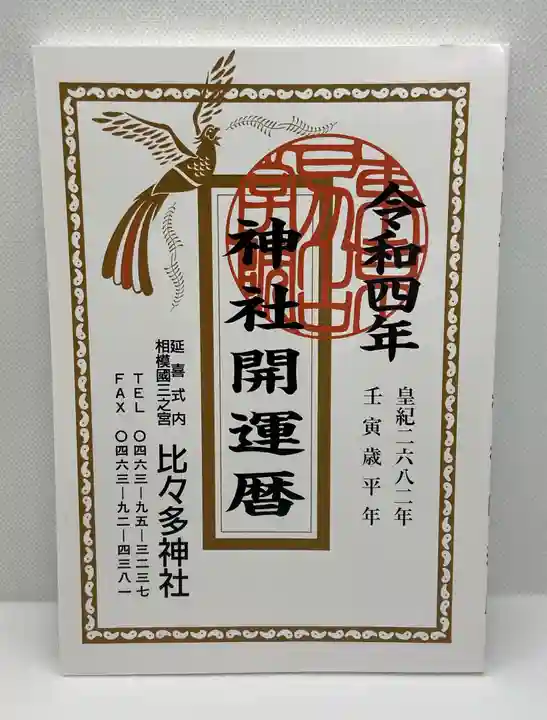 令和四年
皇紀二六八二年
壬寅歳平年
神社開運暦
延喜式内
相模國三之宮
比々多神社
TEL 〇四六三―九五―三二三七
FAX 〇四六三―九二―四三八一